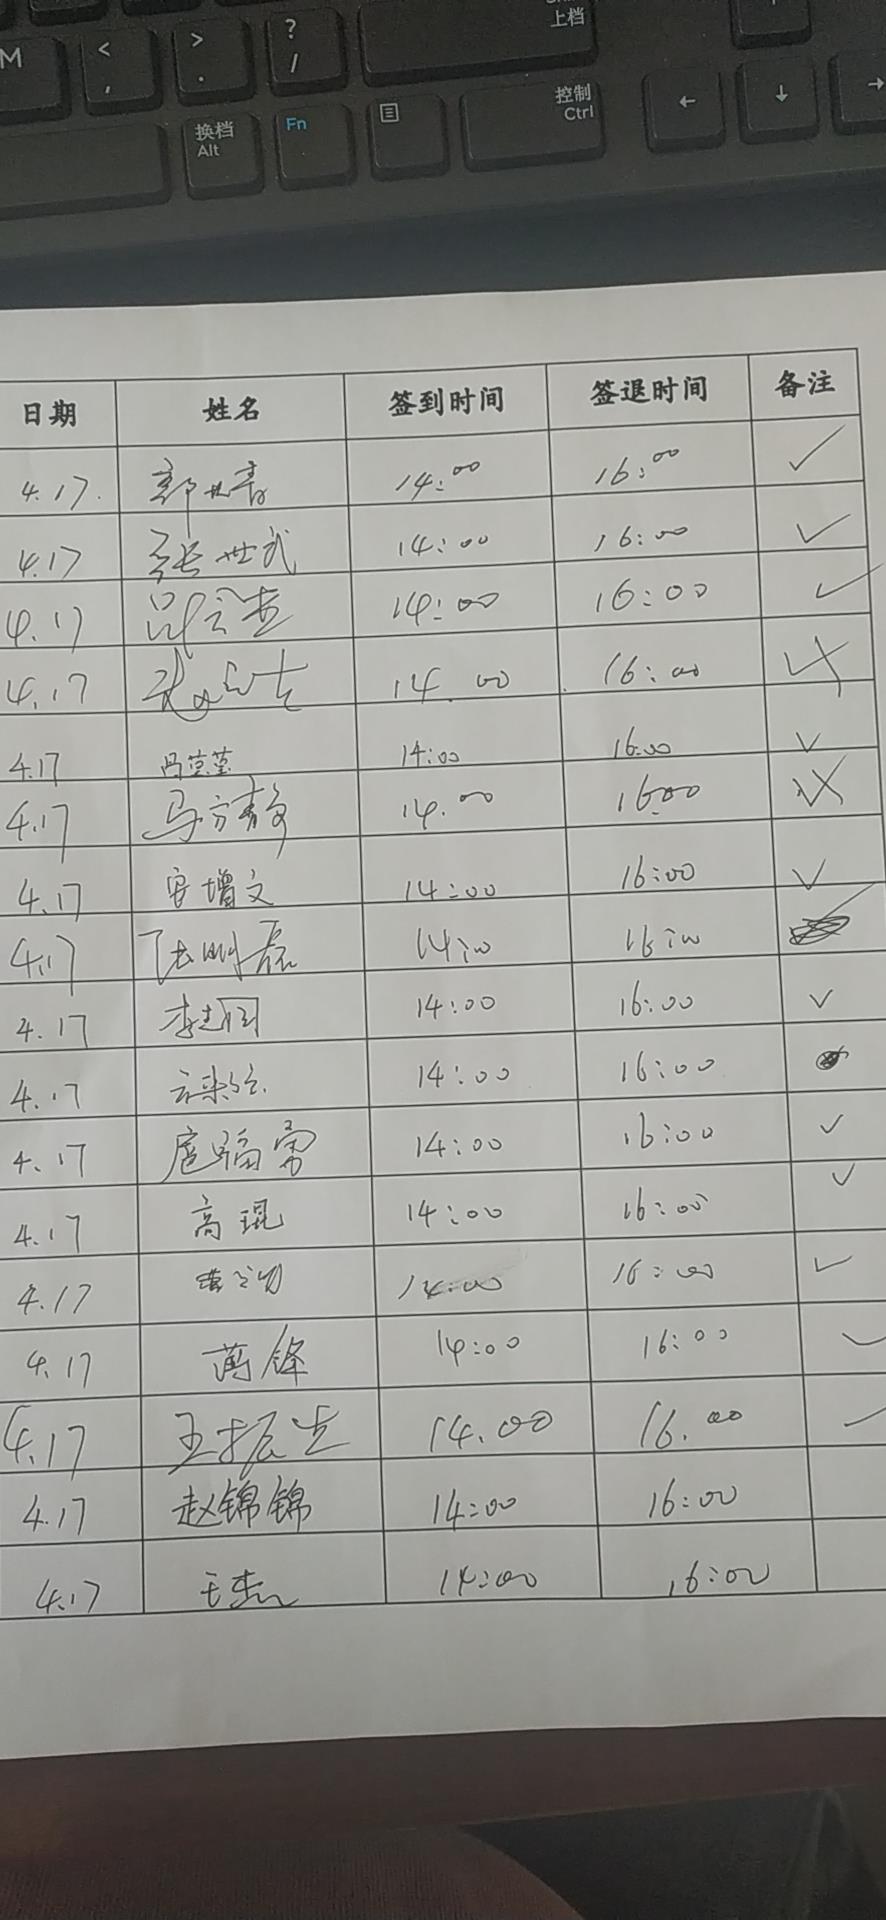 M < , > . ? / 上档
换档 Alt Fn 控制 Ctrl ← ↓ →
日期 姓名 签到时间 签退时间 备注
4.17. 14:00 16:00 ✓
4.17 张世武 14:00 16:00 ✓
4.17 14:00 16:00 ✓
4.17 14.00 16:00
4.17 冯莹莹 14:00 16:00 ✓
4.17 马方静 14.00 16:00
4.17 安增文 14:00 16:00 ✓
4.17 14:00 16:00
4.17 14:00 16:00 ✓
4.17 14:00 16:00
4.17 14:00 16:00 ✓
4.17 高琨 14:00 16:00 ✓
4.17 14:00 16:00 ✓
4.17 蒋锋 14:00 16:00 ✓
4.17 王振生 14.00 16.00 ✓
4.17 赵锦锦 14:00 16:00
4.17 王杰 14:00 16:00